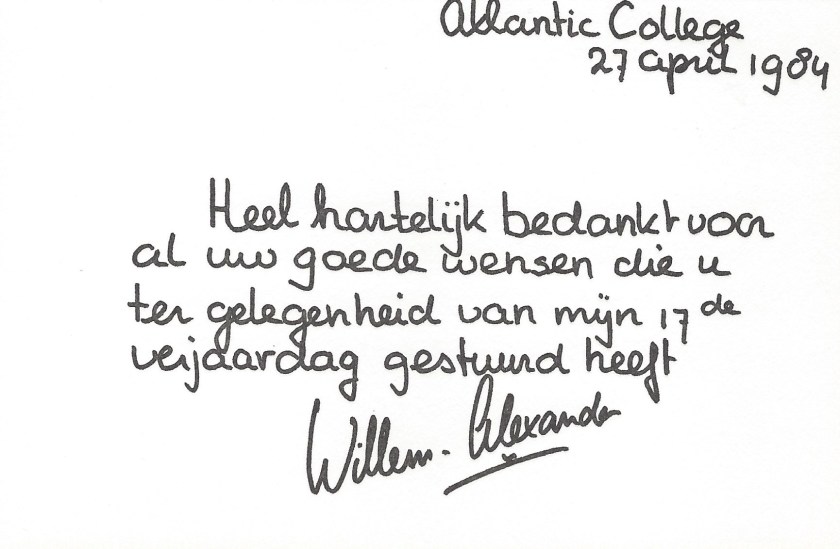 Atlantic College
27 april 1984
Heel hartelijk bedankt voor
al uw goede wensen die u
ter gelegenheid van mijn 17de
verjaardag gestuurd heeft
Willem-Alexander